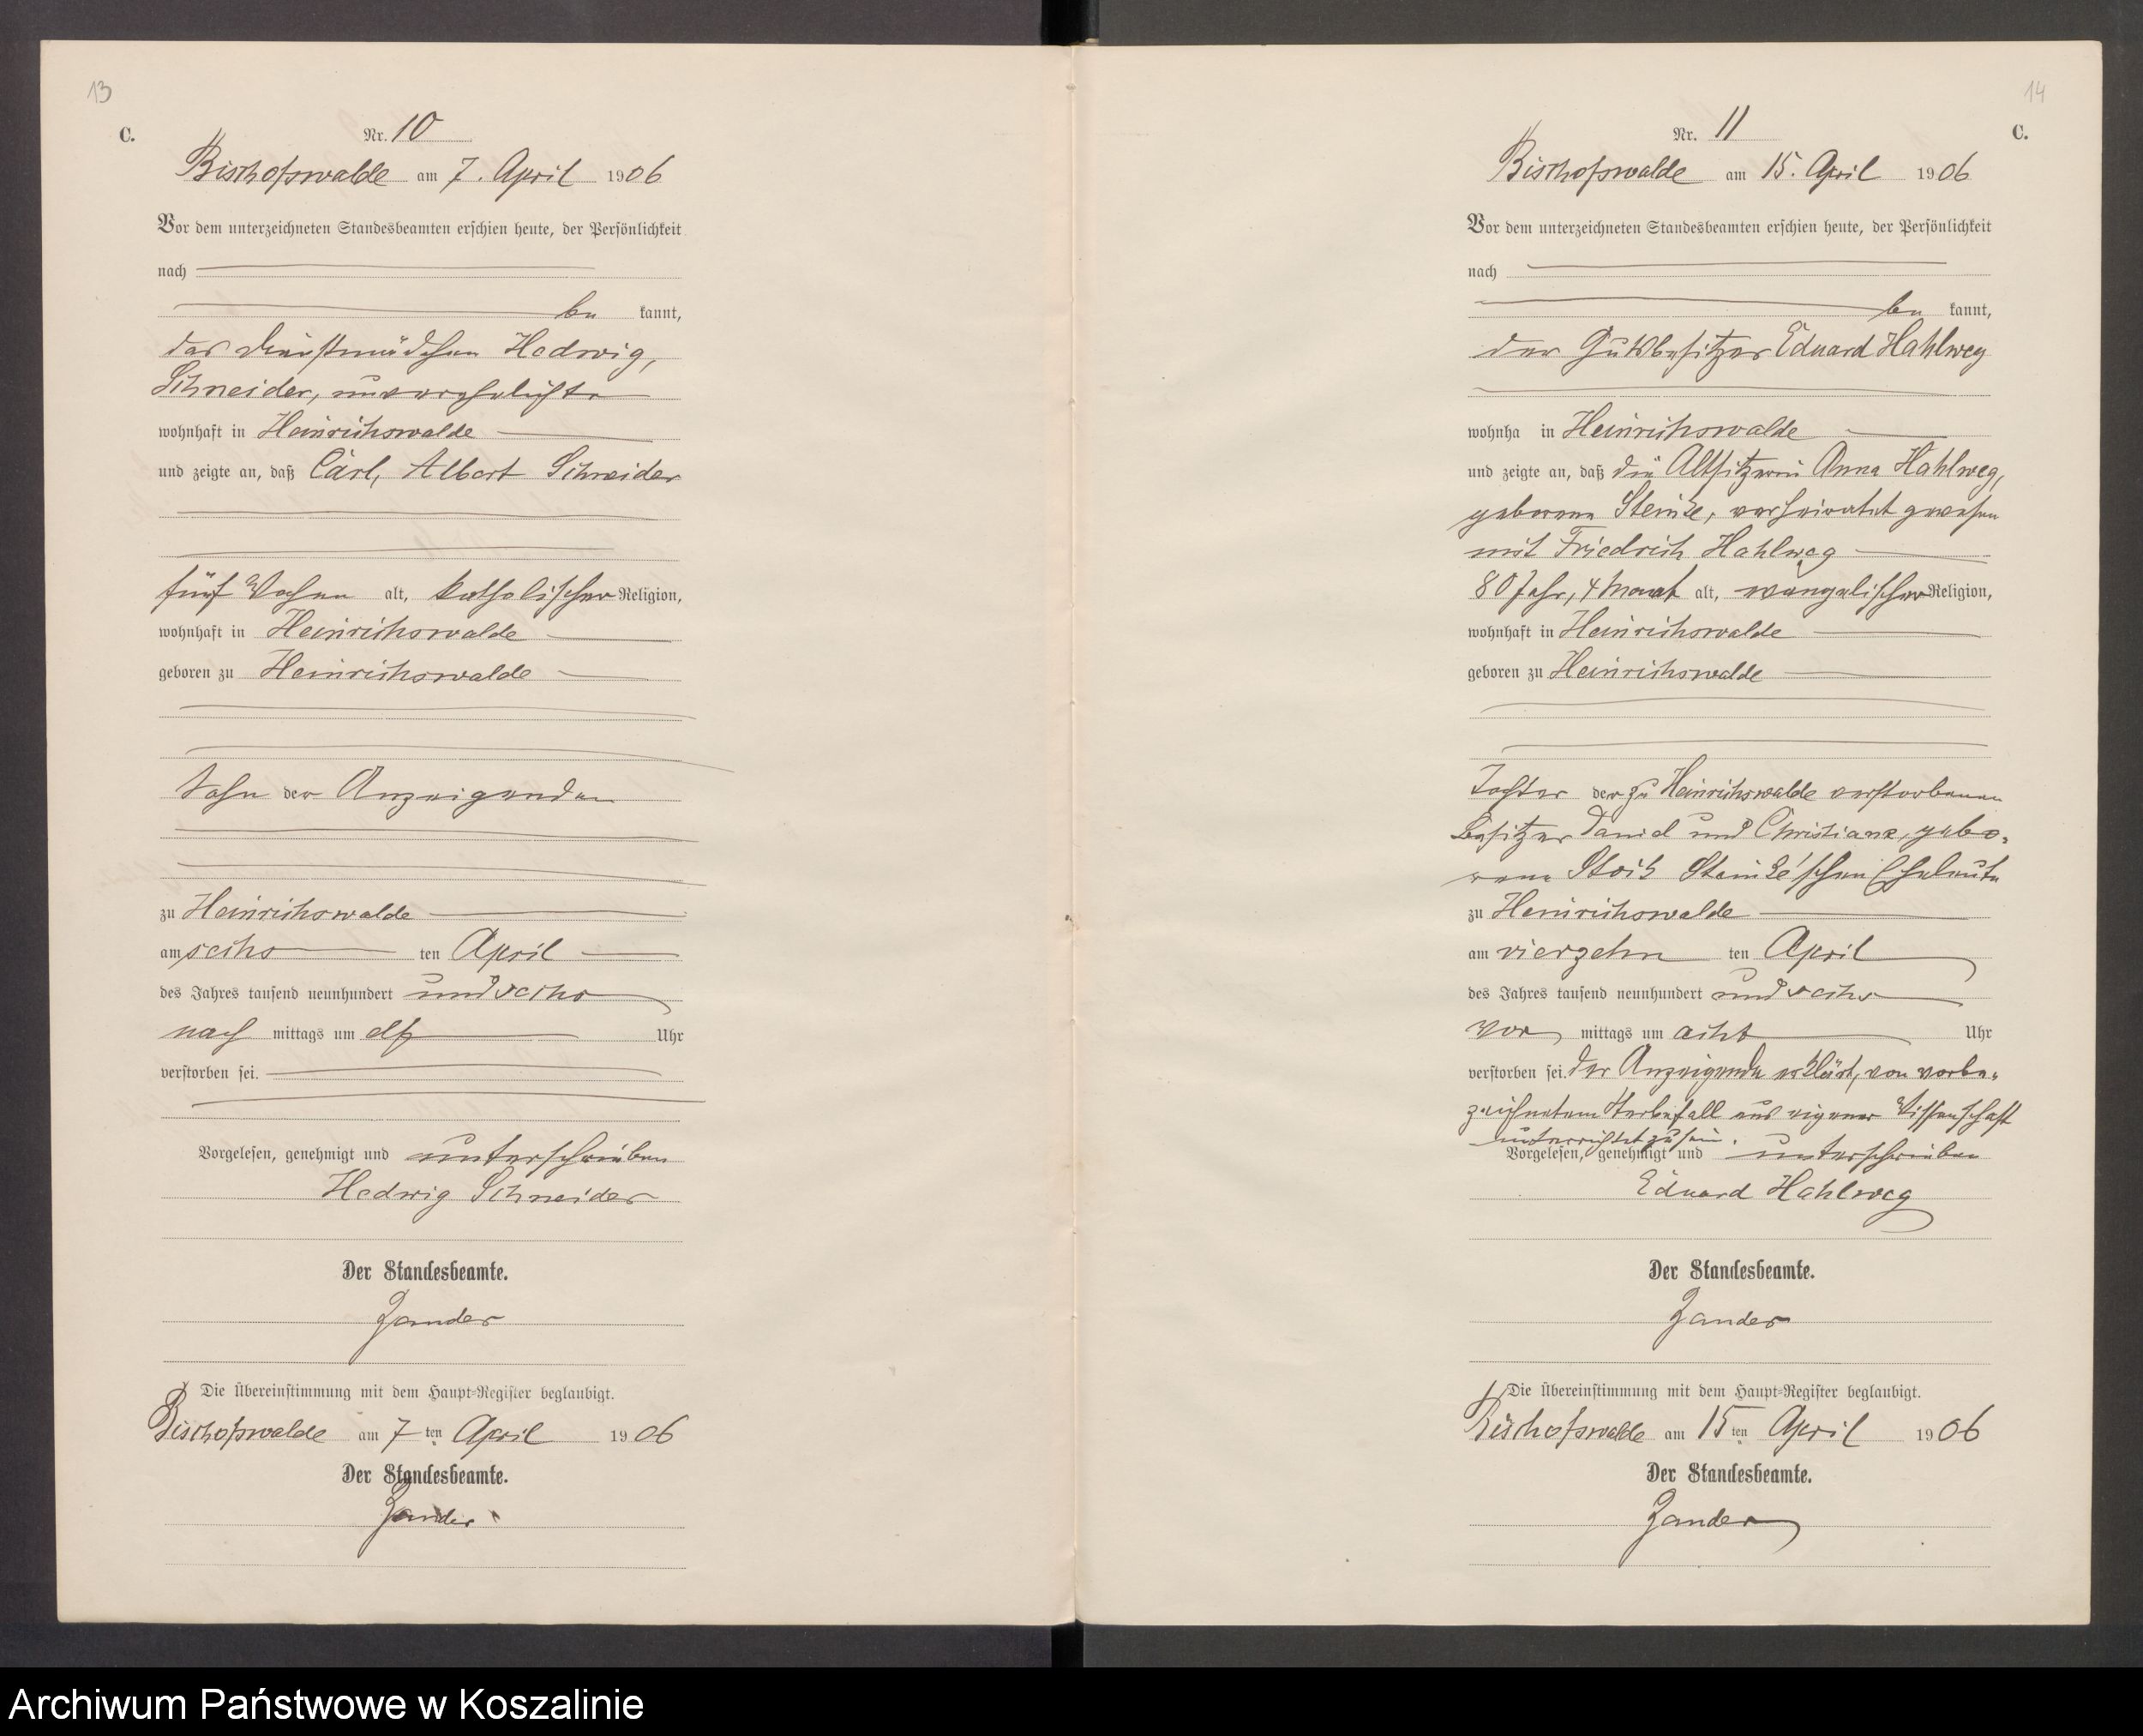 13
C.
Nr. 10
Bischofswalde am 7. April 1906
Vor dem unterzeichneten Standesbeamten erschien heute, der Persönlichkeit
nach
be kannt,
das Dienstmädchen Hedwig,
Schneider, unverehelichte
wohnhaft in Heinrichswalde
und zeigte an, daß Carl, Albert Schneider
fünf Wochen alt, katholischer Religion,
wohnhaft in Heinrichswalde
geboren zu Heinrichswalde
Sohn der Anzeigenden
zu Heinrichswalde
am sechs ten April
des Jahres tausend neunhundert und sechs
nach mittags um elf Uhr
verstorben sei.
Vorgelesen, genehmigt und unterschrieben
Hedwig Schneider
Der Standesbeamte.
Zander
Die Übereinstimmung mit dem Haupt-Register beglaubigt.
Bischofswalde am 7 ten April 1906
Der Standesbeamte.
Zander
14
C.
Nr. 11
Bischofswalde am 15. April 1906
Vor dem unterzeichneten Standesbeamten erschien heute, der Persönlichkeit
nach
be kannt,
der Gutsbesitzer Eduard Hahlweg
wohnha in Heinrichswalde
und zeigte an, daß die Altsitzerin Anna Hahlweg,
geborene Steinke, verheiratet gewesen
mit Friedrich Hahlweg
80 Jahr, 4 Monat alt, evangelischer Religion,
wohnhaft in Heinrichswalde
geboren zu Heinrichswalde
Tochter der zu Heinrichswalde verstorbenen
Besitzer Daniel und Christiane, gebo-
rene Steinke'schen Eheleute
zu Heinrichswalde
am vierzehn ten April
des Jahres tausend neunhundert und sechs
vor mittags um acht Uhr
verstorben sei. Der Anzeigende erklärt, von vorbe-
zeichnetem Sterbefall aus eigener Wissenschaft
unterrichtet zu sein.
Vorgelesen, genehmigt und unterschrieben
Eduard Hahlweg
Der Standesbeamte.
Zander
Die Übereinstimmung mit dem Haupt-Register beglaubigt.
Bischofswalde am 15 ten April 1906
Der Standesbeamte.
Zander
Archiwum Państwowe w Koszalinie